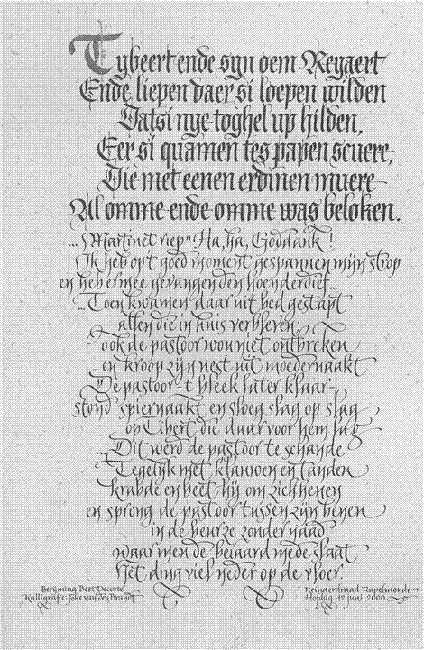 Tybeert ende syn oem Reyaert
Ende liepen daer si loepen wilden
Dat si nye toghel up hilden,
Eer si quamen tes papen scuere,
Die met eenen erdinen muere
Al omme ende omme was beloken.
... Martinet riep "Ha, ha, Goddank!
Ik heb op 't goed moment gespannen mijn strop
en heb ermee gevangen den hoenderdief...
... Toen kwamen daar uit bed gestapt
allen die in huis verbleven
ook de pastoor wou niet ontbreken
en kroop zijn nest uit moedernaakt
De pastoor 't bleek later klaar
stond spiernaakt en sloeg slag op slag
op Tibert, die daar voor hem lag
... Dit werd de pastoor te schande
Tegelijk met klauwen en tanden
krabde en beet hij om zich henen
en sprong de pastoor tussen zijn benen
in de beurze zonder naad
waar men de beiaard mede slaat
Het ding viel neder op de vloer.
Berijming Bert Decorte
Kalligrafie: Joke van den Brandt
Reynaertstad Rupelmonde
Hoogdag 12 juni 2000